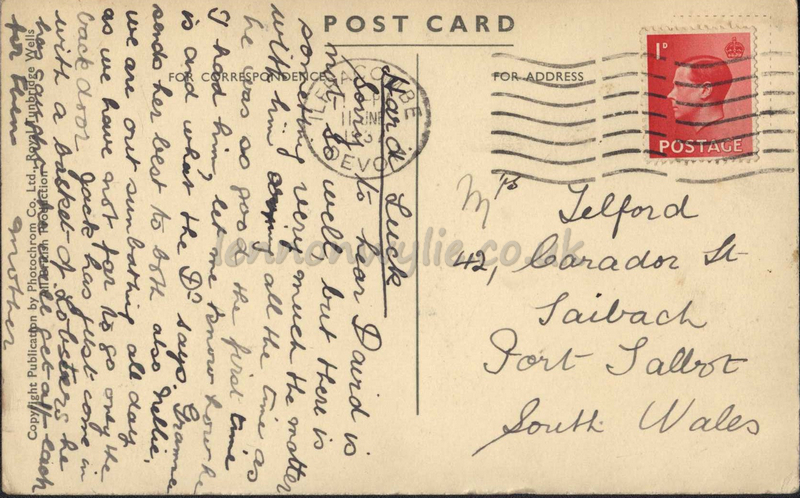 POST CARD
FOR CORRESPONDENCE
FOR ADDRESS
1D
POSTAGE
ILFRACOMBE
DEVON
Hard Luck
Sorry to hear David is
not so well, but there is
something very much the matter
with him all the time as
he was so good the first time
I had him, let me know how he
is and what the Dr says. Grannie
sends her best to both also Nellie,
we are out sunbathing all day
as we have not far to go only the
back door. Jack has just come in
with a basket of Lobsters he
get off each
for
mother
Mrs Telford
42, Carador St
Taibach
Port Talbot
South Wales
Copyright Publication by Photochrom Co., Ltd., Royal Tunbridge Wells
All British Production
lennonwylie.co.uk